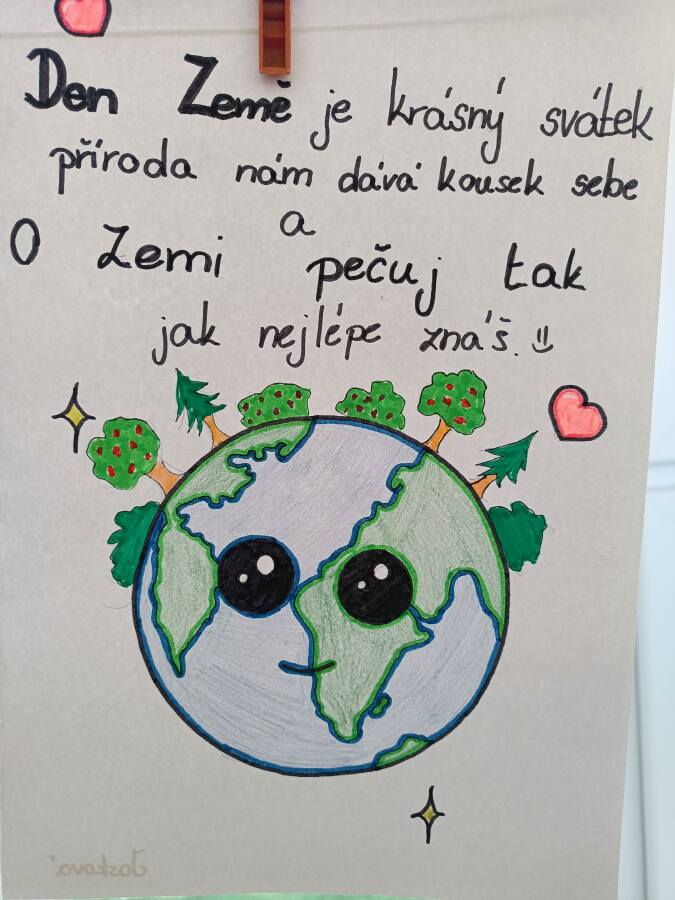 Den Země je krásný svátek
příroda nám dává kousek sebe
a
O Zemi pečuj tak
jak nejlépe znáš.